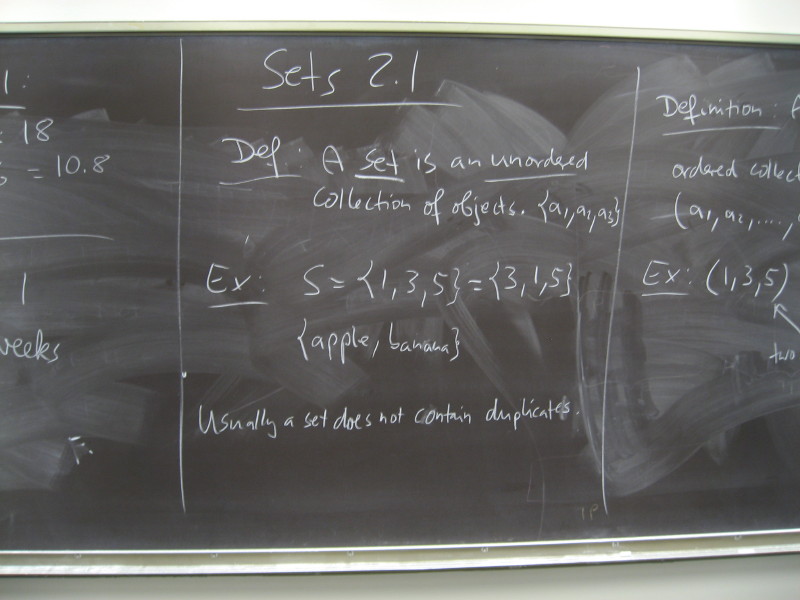 1:
: 18
= 10.8
1
weeks
Sets 2.1
Def.: A set is an unordered
collection of objects. {a₁,a₂,a₃}
Ex: S = {1,3,5} = {3,1,5}
{apple, banana}
Usually a set does not contain duplicates.
Definition: A
ordered collect
(a₁, a₂, ....,
Ex: (1,3,5)
two